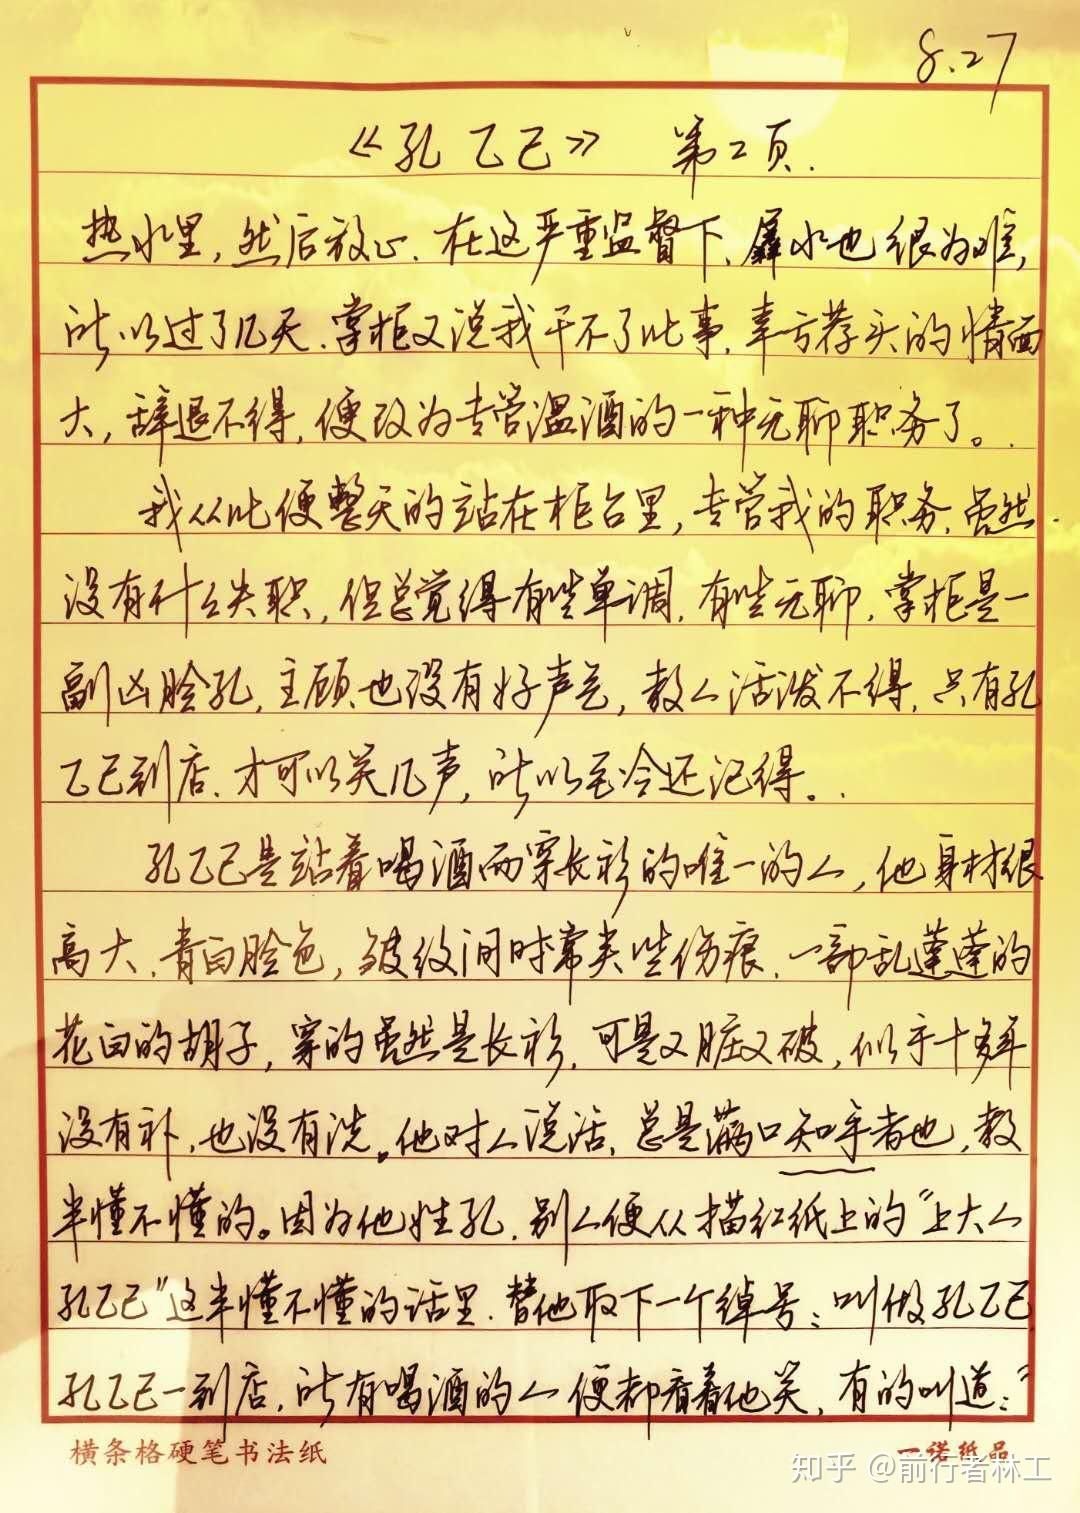 8.27
《孔乙己》 第2页.
热水里，然后放心.在这严重监督下、羼水也很为难，
所以过了几天.掌柜又说我干不了此事.幸亏荐头的情面
大，辞退不得，便改为专管温酒的一种无聊职务了。
我从此便整天的站在柜台里，专管我的职务.虽然
没有什么失职，但总觉得有些单调，有些无聊.掌柜是一
副凶脸孔，主顾也没有好声气，教人活泼不得，只有孔
乙己到店.才可以笑几声，所以至今还记得。
孔乙己是站着喝酒而穿长衫的唯一的人，他身材很
高大.青白脸色，皱纹间时常夹些伤痕.一部乱蓬蓬的
花白的胡子，穿的虽然是长衫，可是又脏又破，似乎十多年
没有补，也没有洗。他对人说话、总是满口知乎者也，教
半懂不懂的。因为他姓孔，别人便从描红纸上的“上大人
孔乙己”这半懂不懂的话里.替他取下一个绰号：叫做孔乙己.
孔乙己一到店，所有喝酒的人便都看着他笑，有的叫道：“
横条格硬笔书法纸
一诺纸品
知乎 @前行者林工